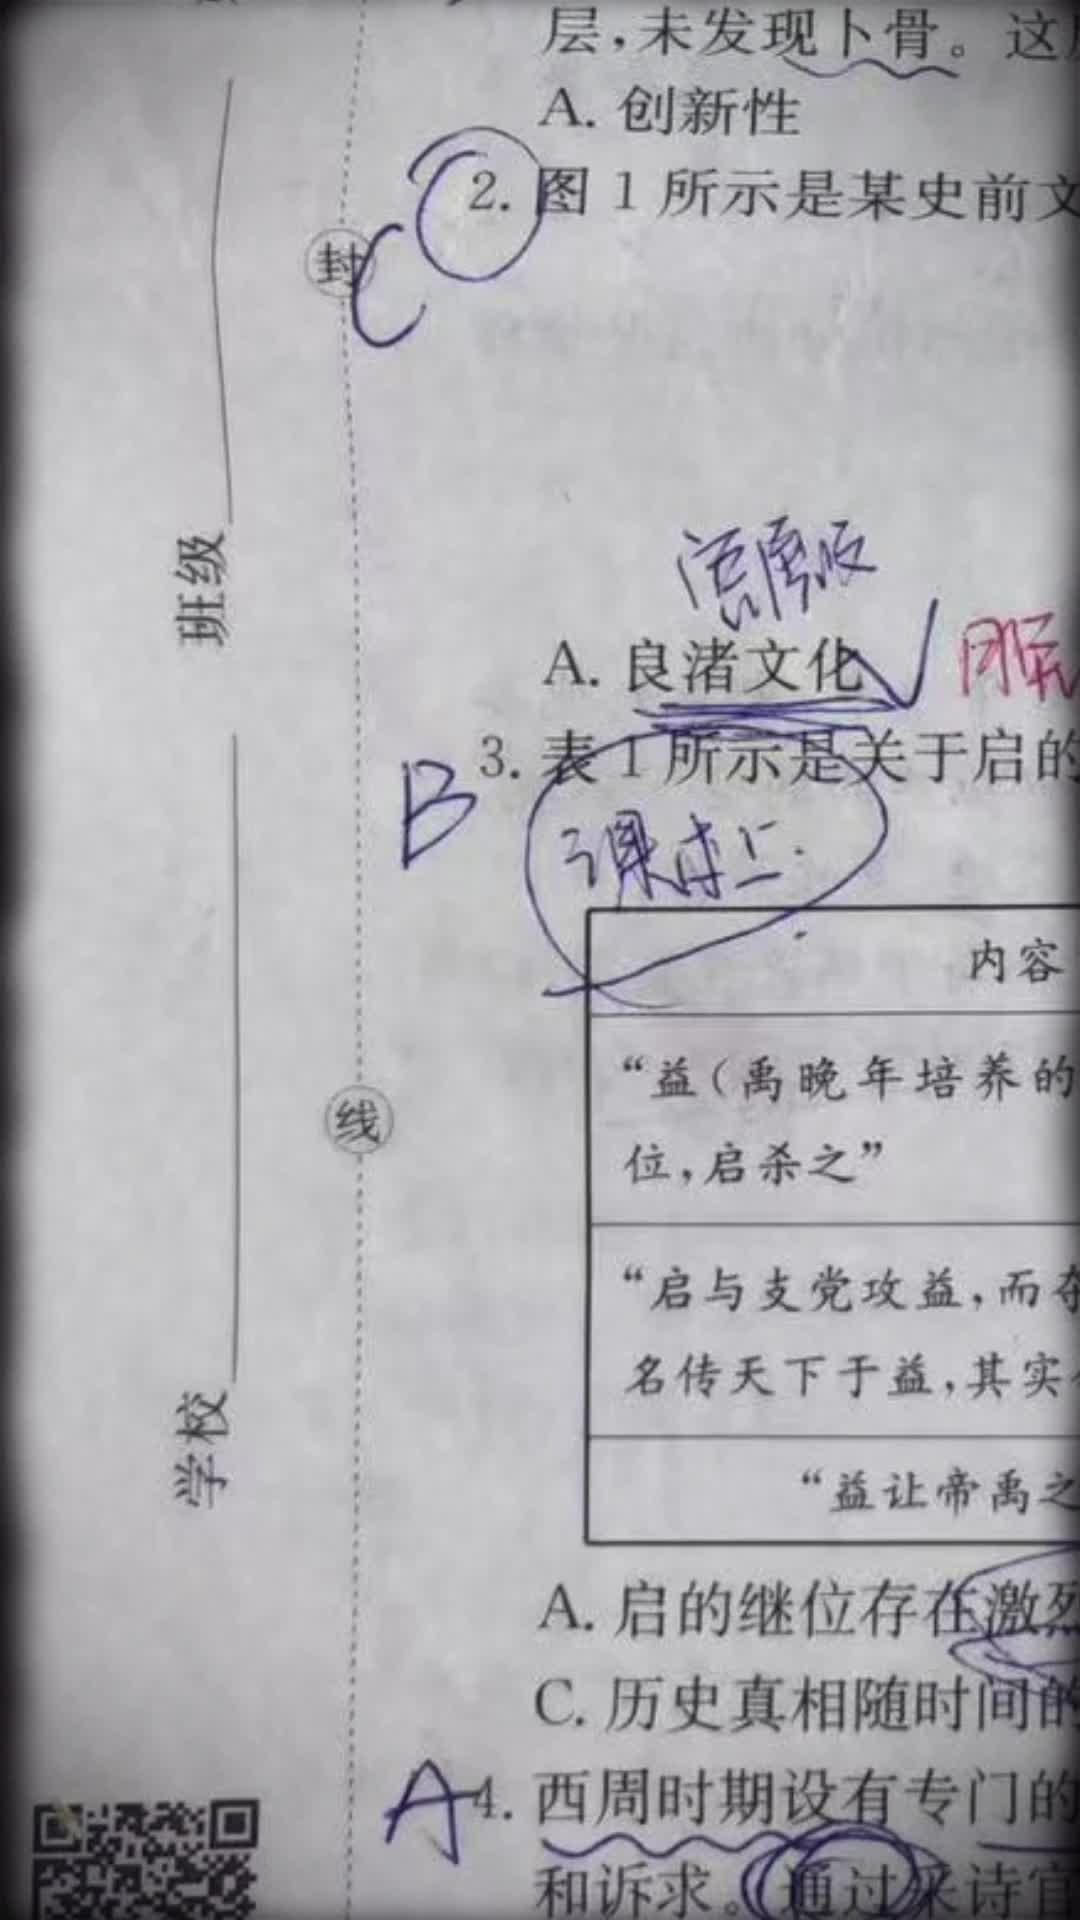 层，未发现卜骨。这
A. 创新性
2. 图 1 所示是某史前文
C
封
A. 良渚文化
3. 表 1 所示是关于启的
B
课本上
内容
“益（禹晚年培养的
位，启杀之”
“启与支党攻益，而夺
名传天下于益，其实
“益让帝禹之
A. 启的继位存在激烈
C. 历史真相随时间的
A
4. 西周时期设有专门的
和诉求。通过采诗官
班级
线
学校